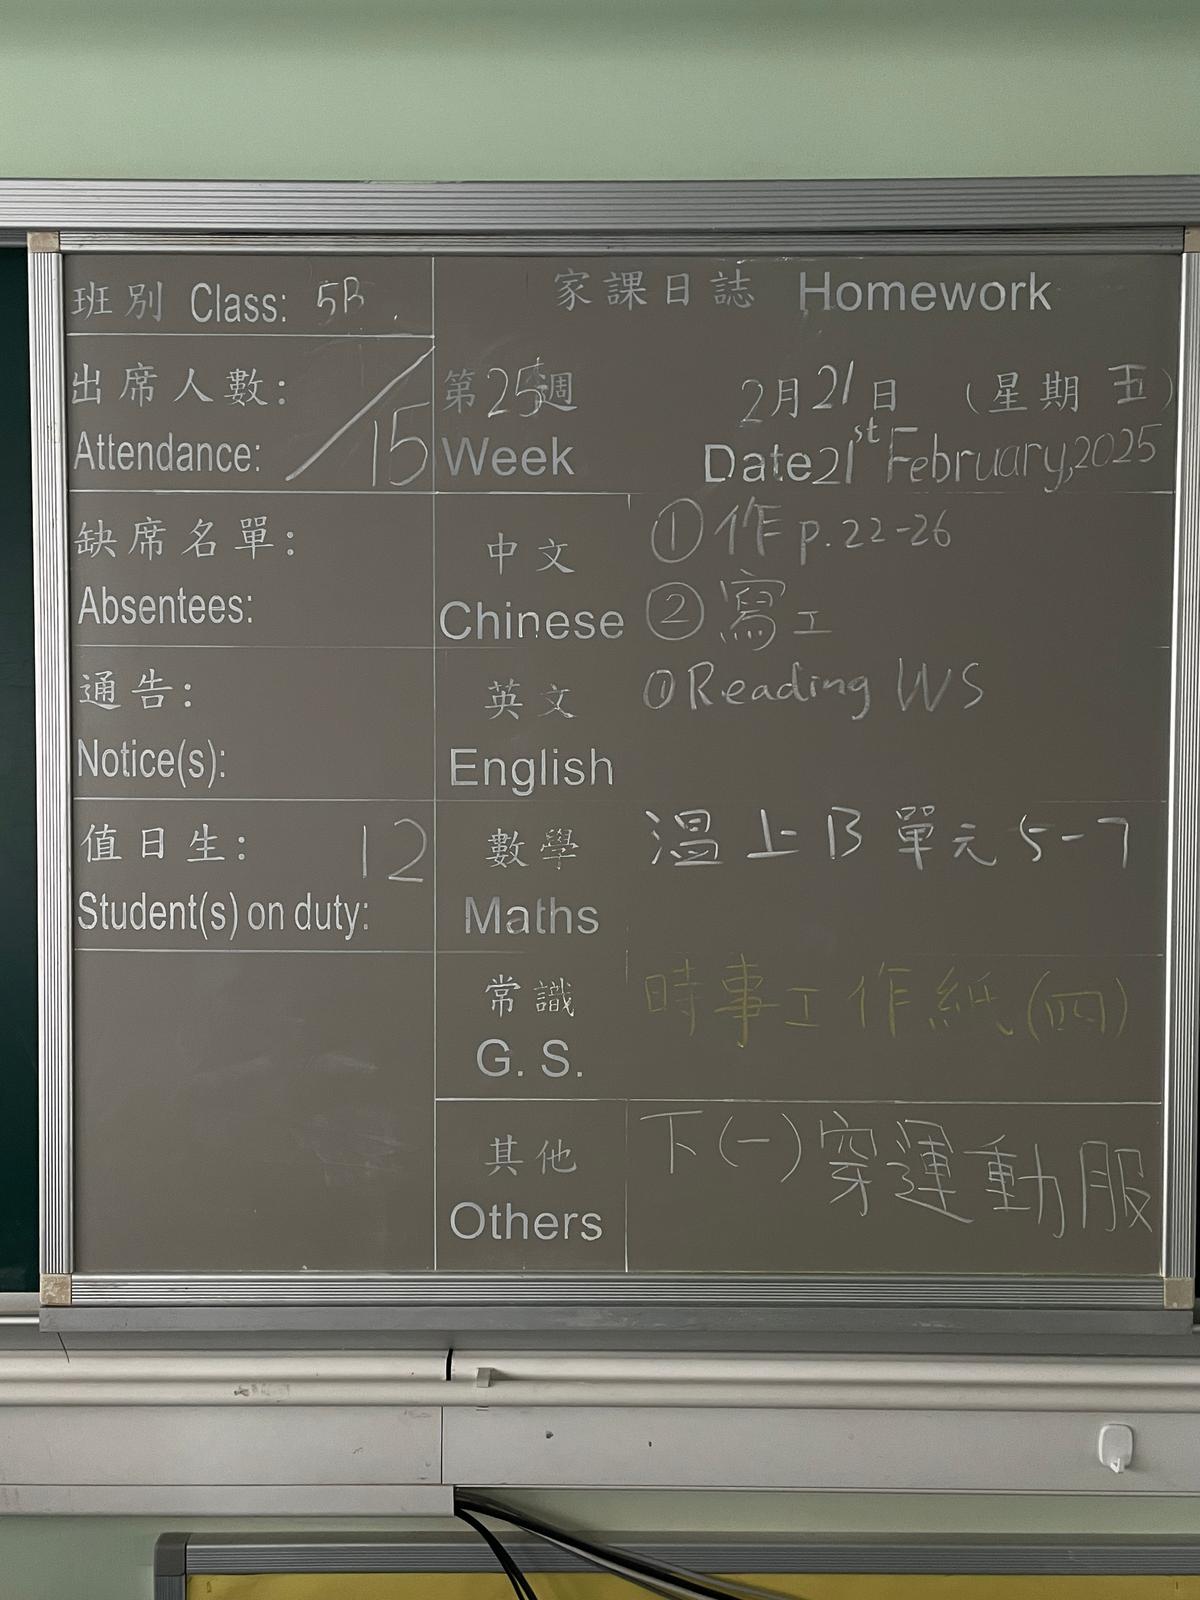 班別 Class: 5B
家課日誌 Homework
出席人數:
Attendance: /15
第25週
Week
2月21日 (星期五)
Date 21st February, 2025
缺席名單:
Absentees:
中文
Chinese
①作 p.22-26
②寫工
通告:
Notice(s):
英文
English
①Reading WS
值日生: 12
Student(s) on duty:
數學
Maths
溫上B單元5-7
常識
G. S.
時事工作紙(四)
其他
Others
下(一)穿運動服